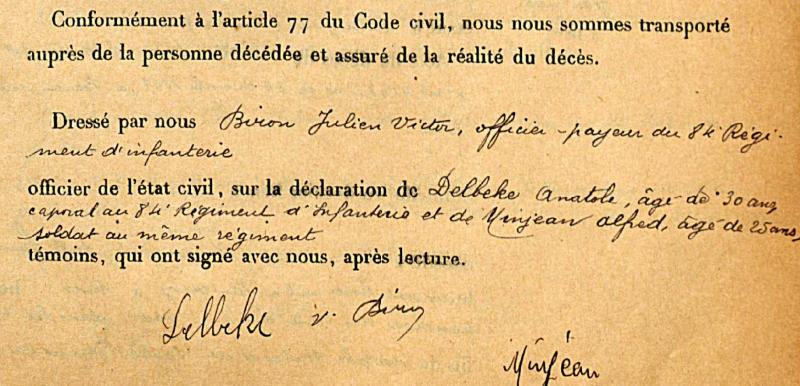 Conformément à l'article 77 du Code civil, nous nous sommes transporté
auprès de la personne décédée et assuré de la réalité du décès.
Dressé par nous Biron Julien Victor, officier-payeur du 84e Régi-
ment d'infanterie
officier de l'état civil, sur la déclaration de Delbeke Anatole, âgé de 30 ans,
caporal au 84e Régiment d'Infanterie et de Minjean Alfred, âgé de 25 ans,
soldat au même régiment
témoins, qui ont signé avec nous, après lecture.
Delbeke J. Biron
Minjean